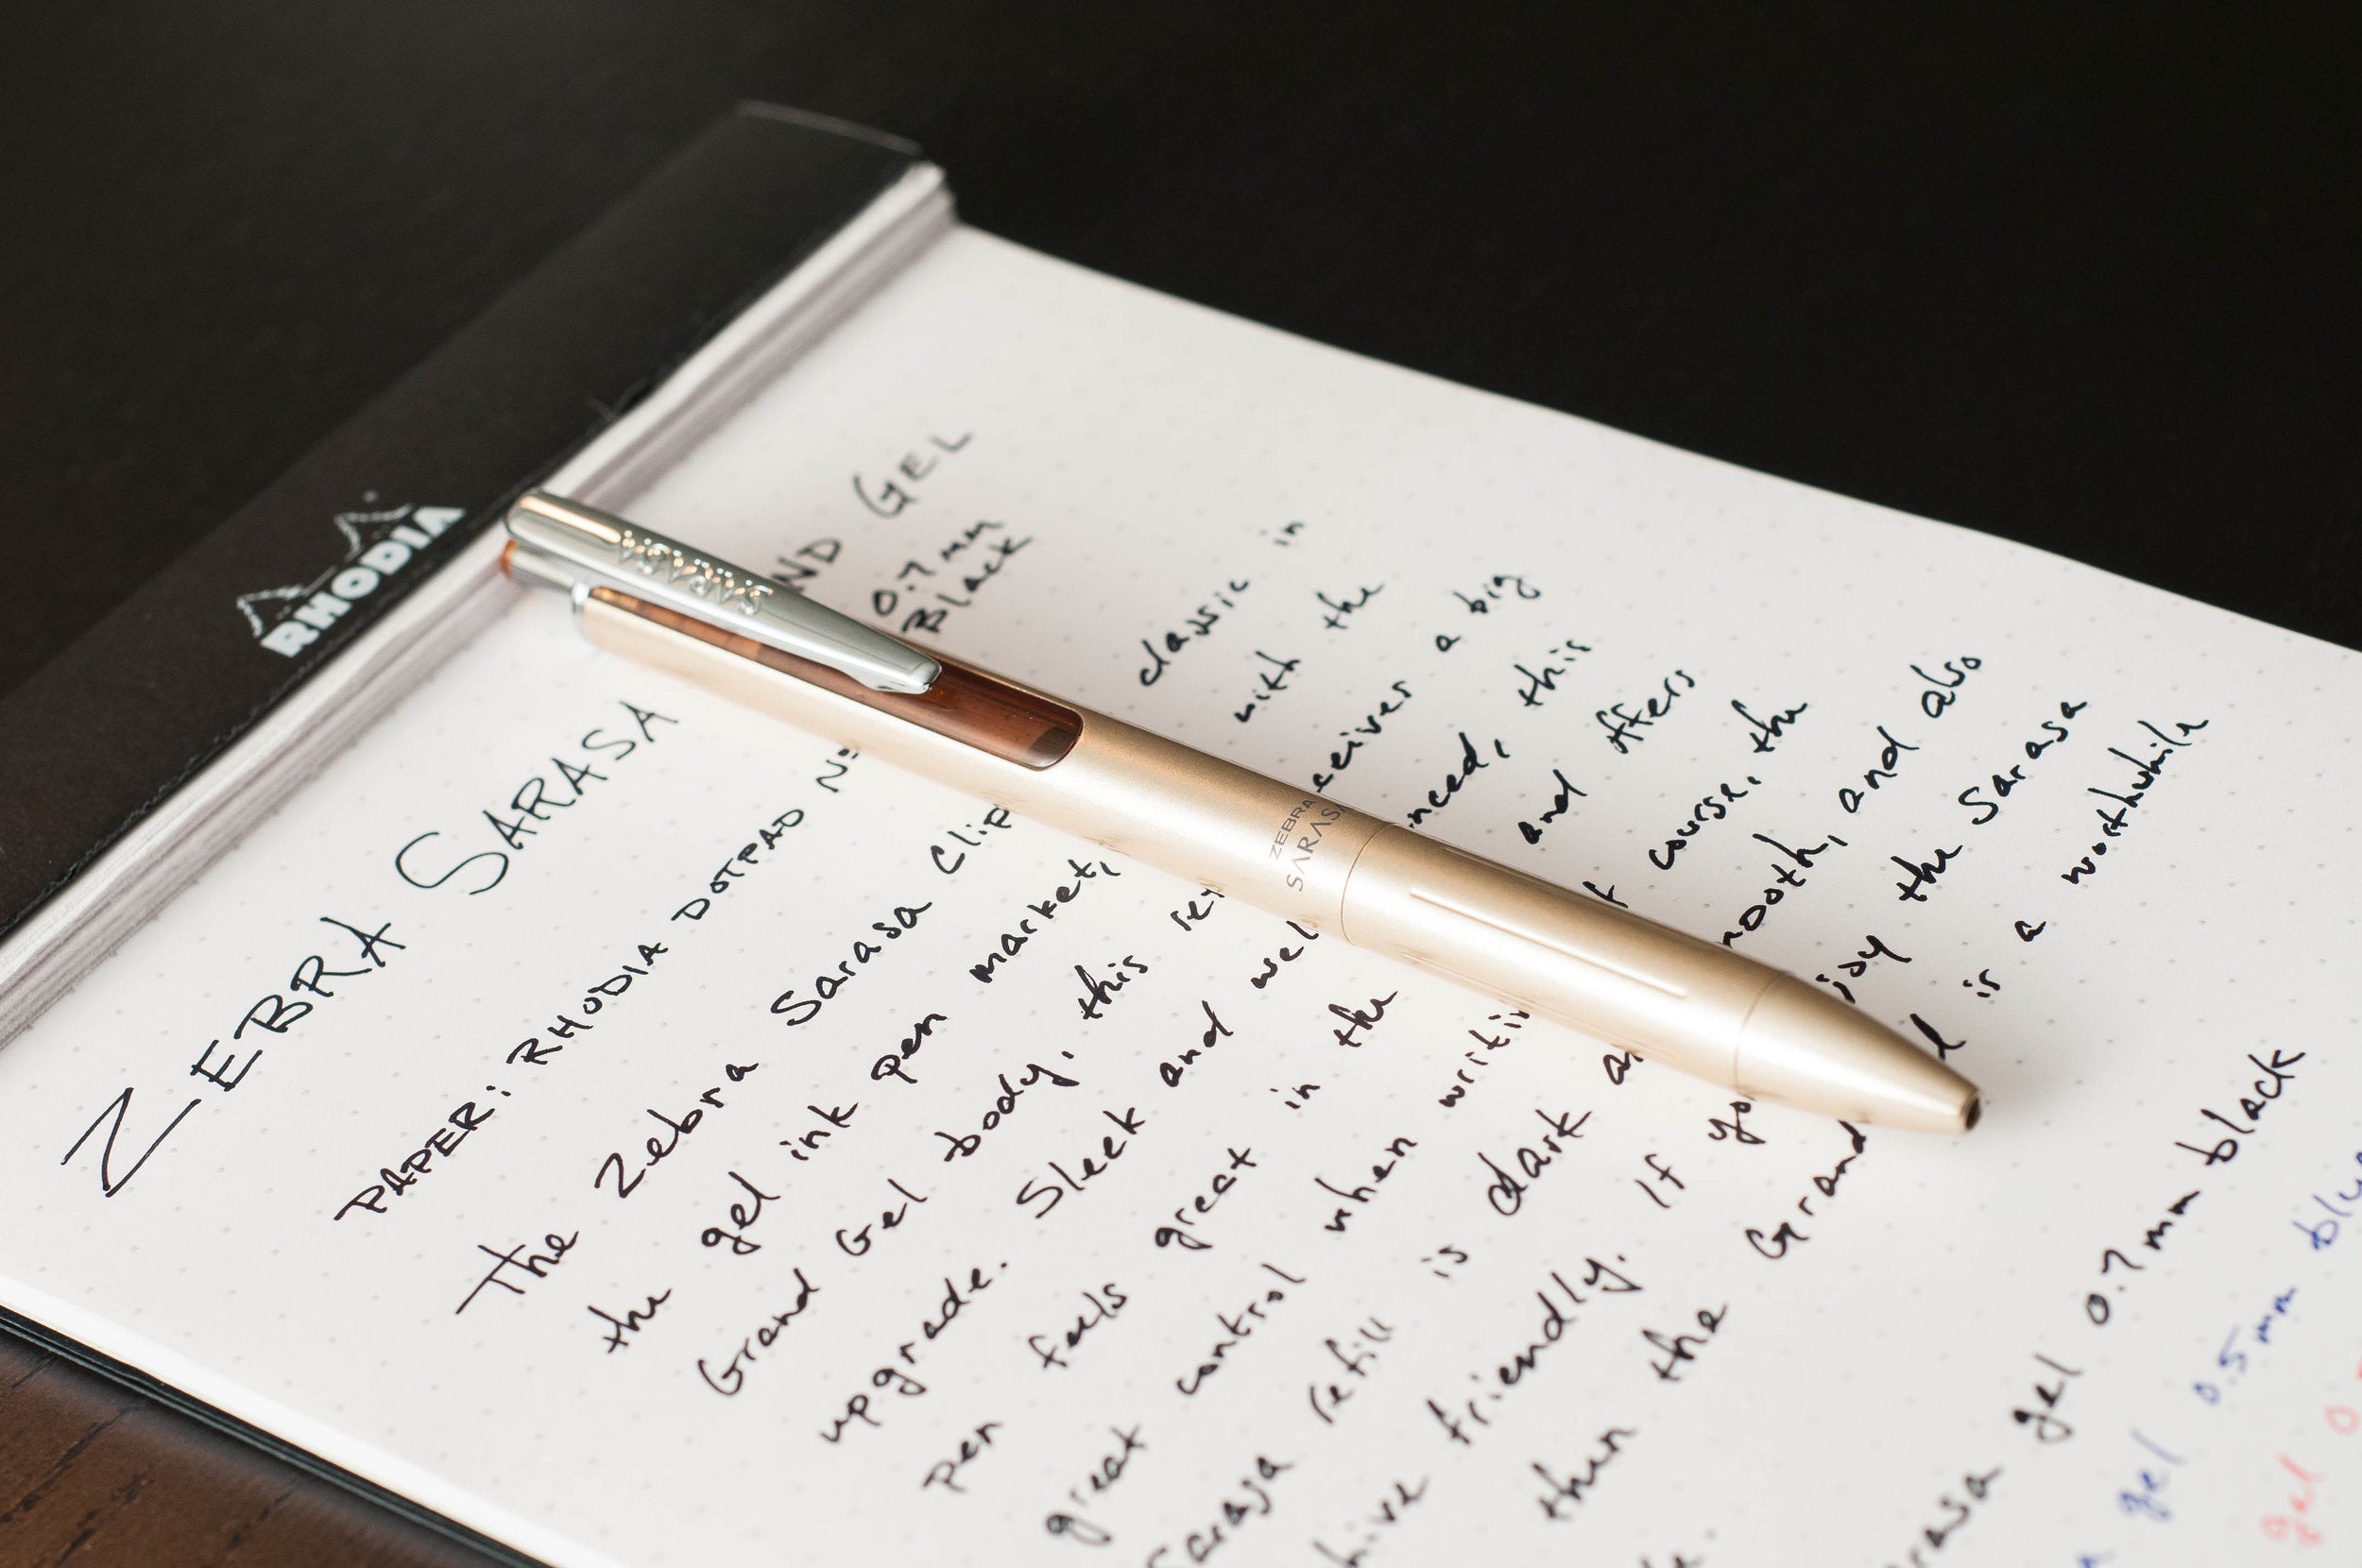 RHODIA
SARASA
ZEBRA
SARASA
ZEBRA SARASA ND GEL
0.7 mm
PAPER: RHODIA DOTPAD Nº Black
The Zebra Sarasa Clip classic in
the gel ink pen market, with the
Grand Gel body, this a big
upgrade. Sleek and this
pen feels great in the and offers
great control when course, the
Sarasa refill is dark and also
friendly. If the Sarasa
then the Grand is a worthwhile
gel 0.7 mm black
gel 0.5 mm
gel